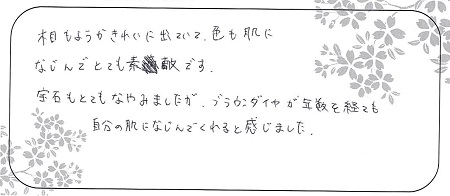 木目もようがきれいに出ていて、色も肌に
なじんでとても素敵です。
宝石もとてもなやみましたが、ブラウンダイヤが年数を経ても
自分の肌になじんでくれると感じました。